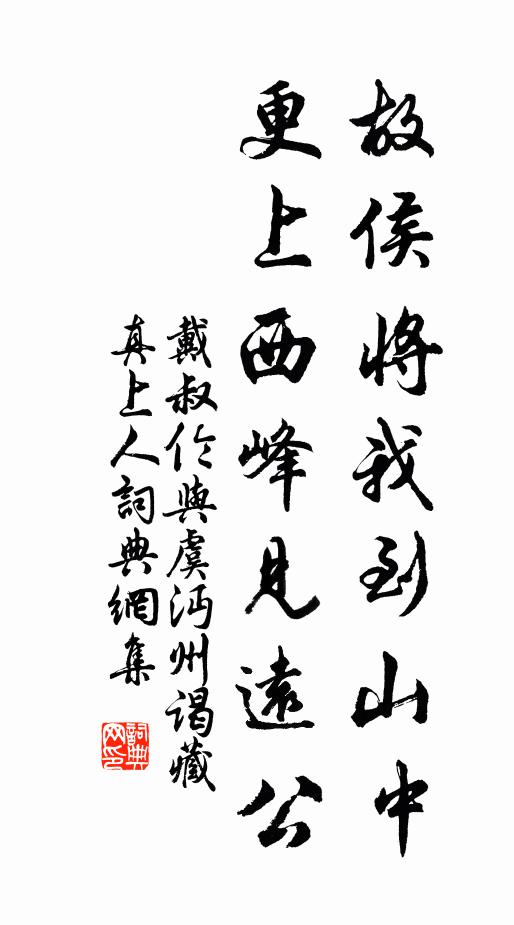 故侯將我到山中
更上西峰見遠公
戴叔伦與虞沔州谒藏
真上人詞典網集
詞典
网印